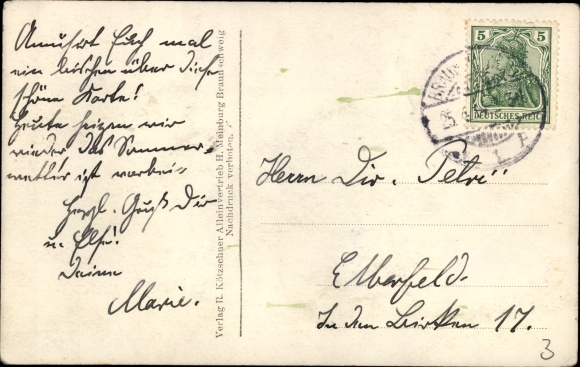 Amüsirt Euch mal
ein bischen über diese
schöne Karte!
Heute heizen wir
wieder das Sommer-
wetter ist vorbei
Herzl. Gruß Dir
u. Else!
Deine
Marie.
Verlag R. Kötzschner Alleinvertrieb H. Meinburg Braunschweig
Nachdruck verboten.
5 5
DEUTSCHES REICH
25.
Herrn Dir. Petri
Elberfeld.
In den Birken 17.
3